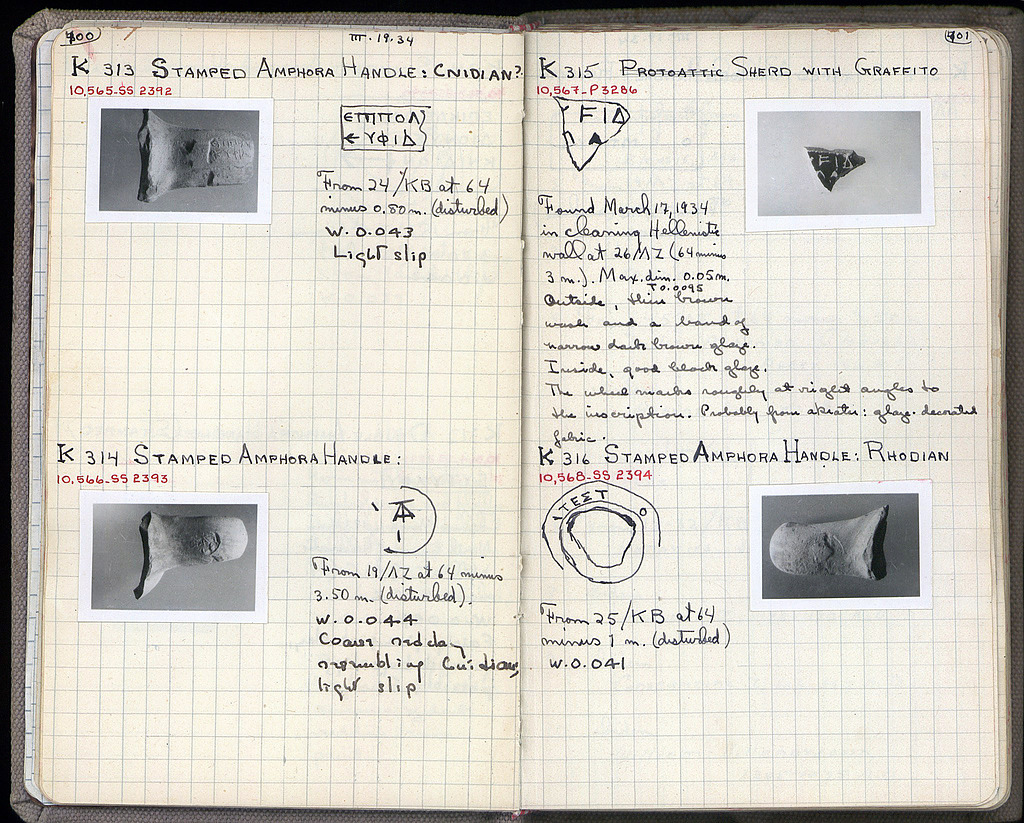 400
III.19.34
K 313 STAMPED AMPHORA HANDLE: CNIDIAN?
10,565-SS 2392
ΕΠΙΠΟΛ
← ΥΦΙΔ
From 24/KB at 64
minus 0.80 m. (disturbed)
W. 0.043
Light slip
K 314 STAMPED AMPHORA HANDLE:
10,566-SS 2393
From 19/ΛΖ at 64 minus
3.50 m. (disturbed).
W. 0.044
Coarse red clay
resembling Cnidian,
light slip
401
K 315 PROTOATTIC SHERD WITH GRAFFITO
10,567-P 3286
FIΔ
Found March 17, 1934
in cleaning Hellenistic
wall at 26/ΛΖ (64 minus
3 m.). Max. dim. 0.05m.
T 0.0095
Outside, thin brown
wash and a band of
narrow dark brown glaze.
Inside, good black glaze.
The wheel marks roughly at right angles to
the inscription. Probably from a krater: glaze-decorated
fabric.
K 316 STAMPED AMPHORA HANDLE: RHODIAN
10,568-SS 2394
ΤΕΣΤ
Ο
From 25/KB at 64
minus 1 m. (disturbed)
W. 0.041